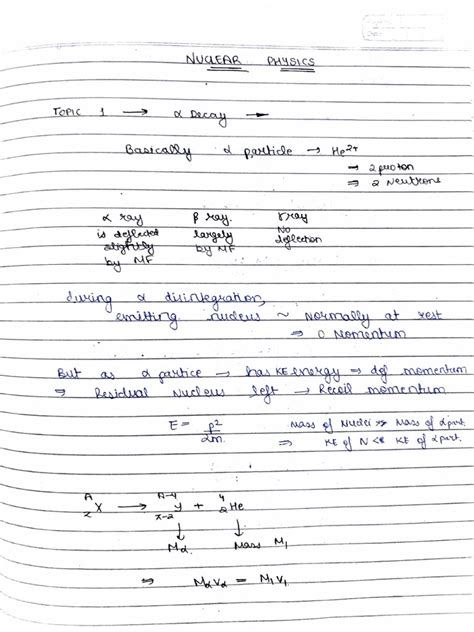 NUCLEAR PHYSICS
TOPIC 1 → α Decay →
Basically α particle → He2+
→ 2 proton
⇒ 2 Neutrons
α ray β ray γ ray
is deflected largely No
slightly by MF deflection
by MF
during α disintegration,
emitting nucleus ~ Normally at rest
⇒ 0 Momentum
But as α partice → has KE energy ⇒ def momentum
⇒ Residual Nucleus left → Recoil momentum
E = p²/2m. Mass of Nuclei >> Mass of α part.
⇒ KE of N << KE of α part.
A Z X → A-4 Z-2 Y + 4 2 He
↓ ↓
Mα Mass M1
⇒ MαVα = M1V1